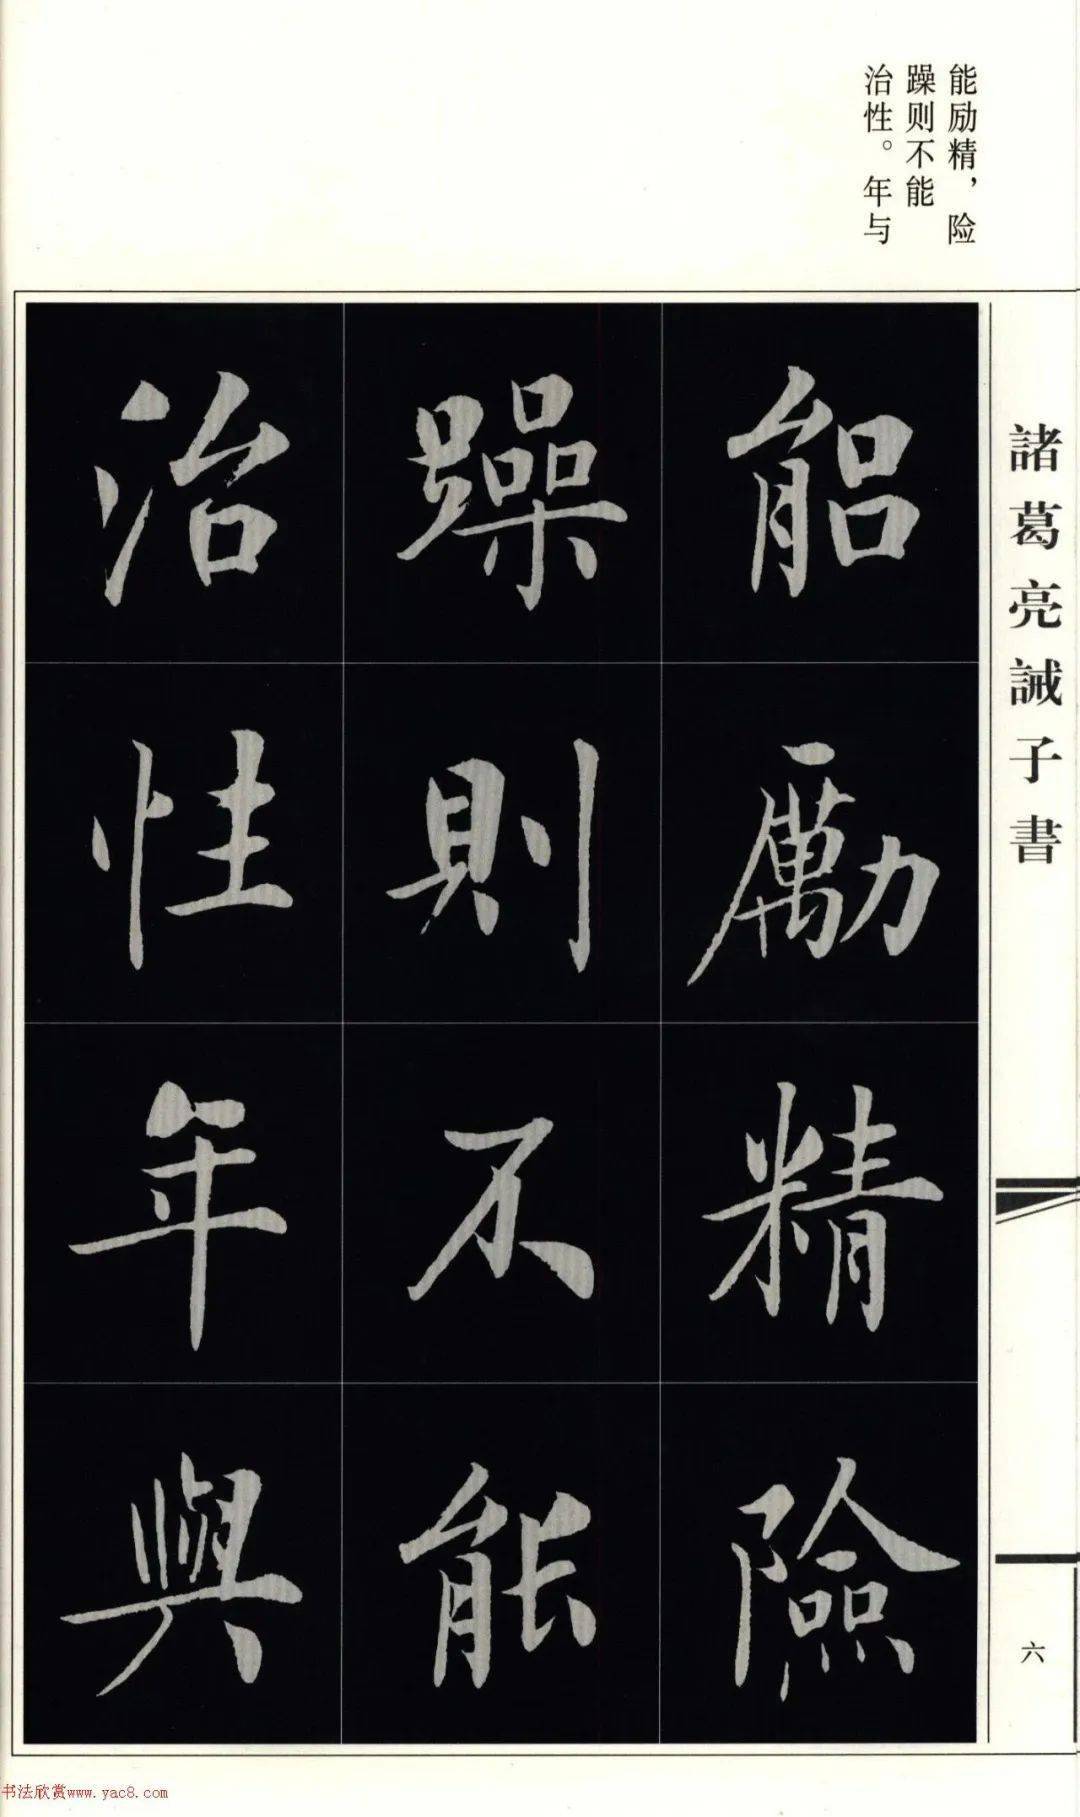 能励精，险
躁则不能
治性。年与
諸葛亮誡子書
能勵精險
躁則不能
治性年與
六
书法欣赏www.yac8.com